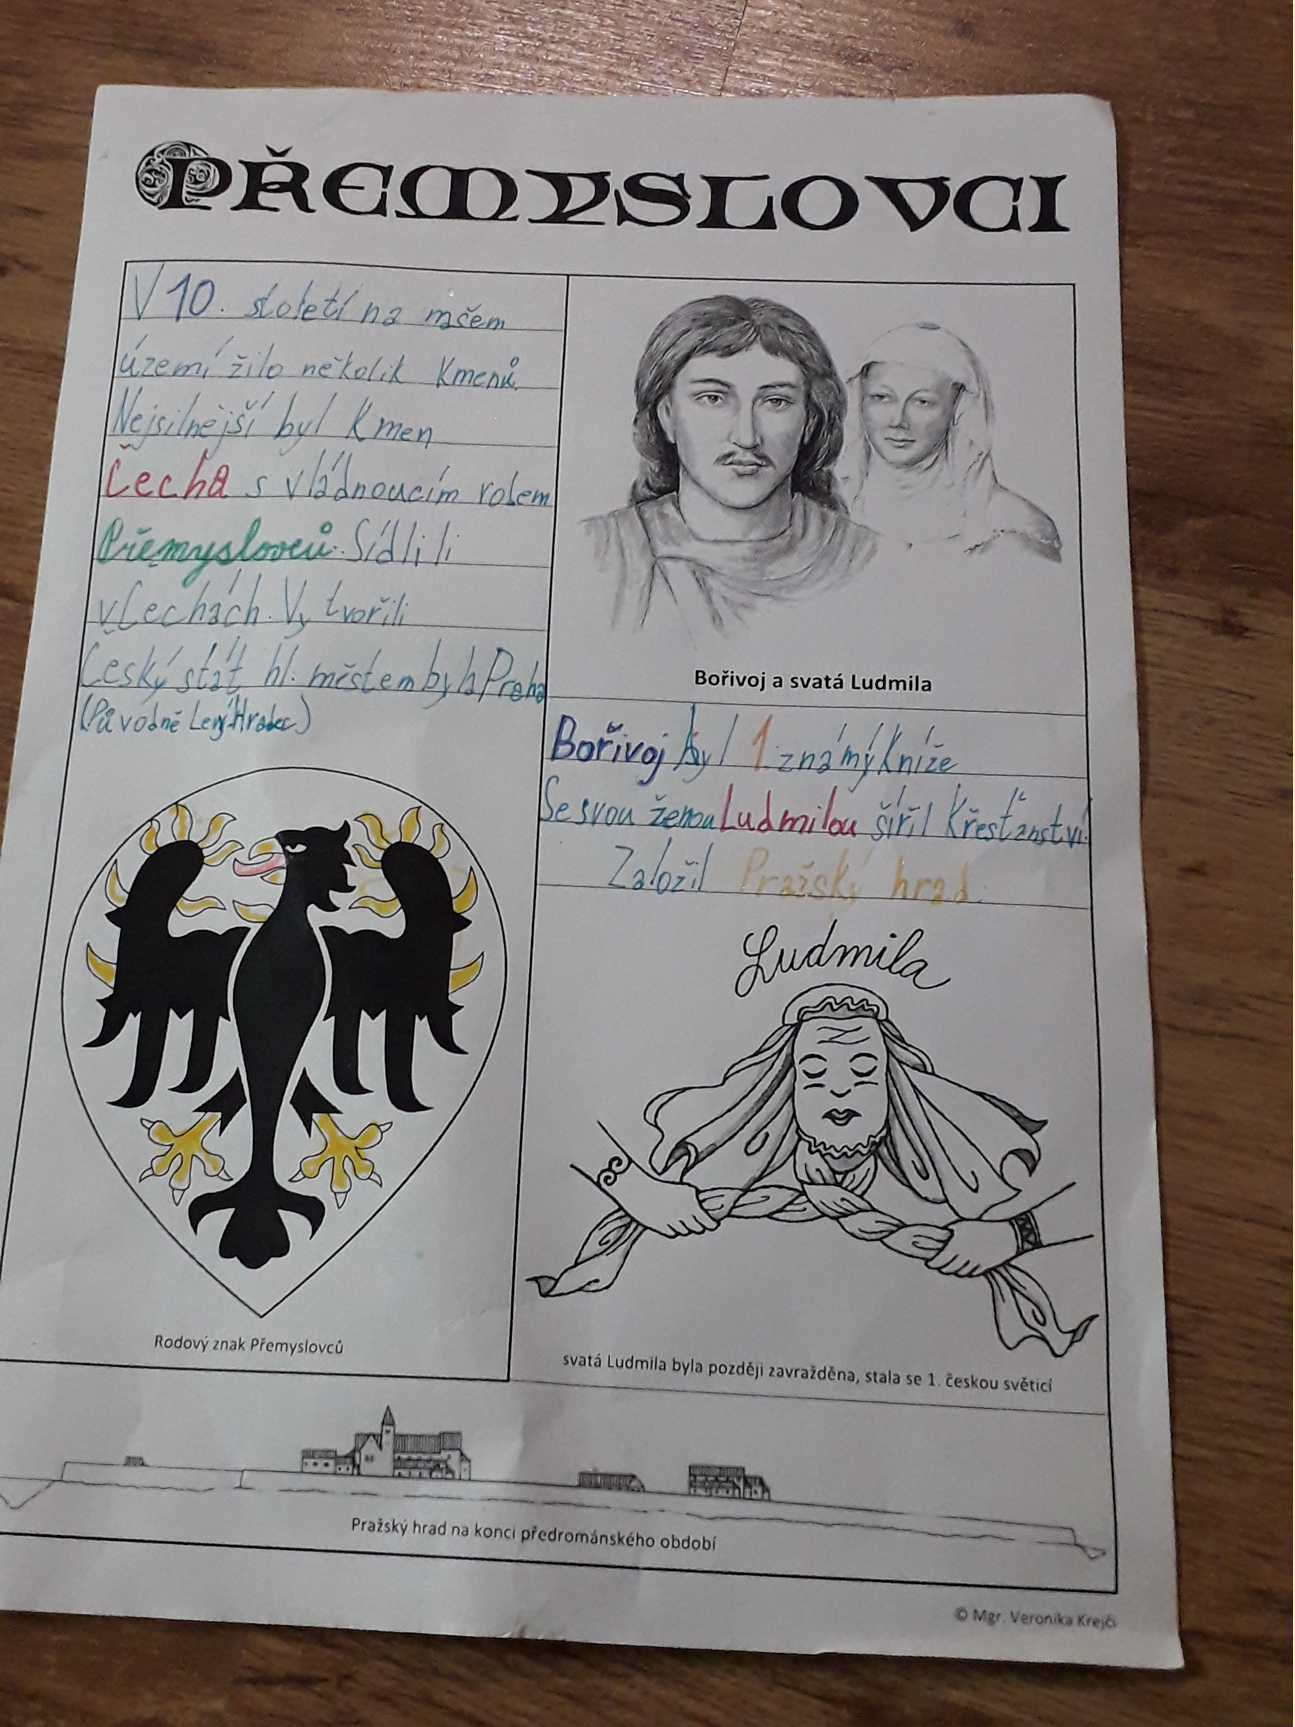 PŘEMYSLOVCI
V 10. století na našem
území žilo několik Kmenů.
Nejsilnější byl Kmen
Čecha s vládnoucím rodem
Přemyslovců. Sídlili
v Čechách. Vytvořili
Český stát hl. městem byla Praha
(Původně Levý Hradec)
Rodový znak Přemyslovců
Bořivoj a svatá Ludmila
Bořivoj byl 1. známý Kníže
Se svou ženou Ludmilou šířil Křesťanství.
Založil Pražský hrad.
Ludmila
svatá Ludmila byla později zavražděna, stala se 1. českou světicí
Pražský hrad na konci předrománského období
© Mgr. Veronika Krejčí